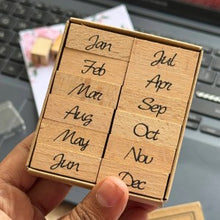 Jan
Feb
Mar
Aug
May
Jun
Jul
Apr
Sep
Oct
Nov
Dec